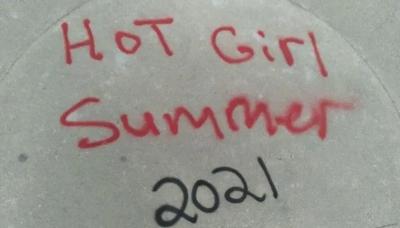 HoT Girl
Summer
2021